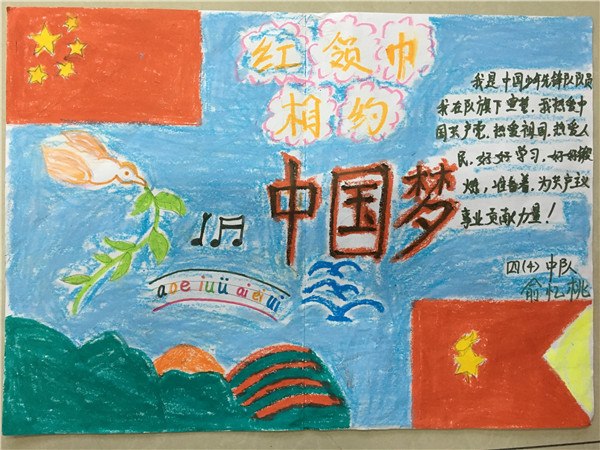 红领巾
相约
中国梦
aoe iuü ai ei ui
我是中国少年先锋队队员
我在队旗下宣誓，我热爱中
国共产党，热爱祖国，热爱人
民，好好学习，好好锻
炼，准备着，为共产主义
事业贡献力量！
四（4）中队